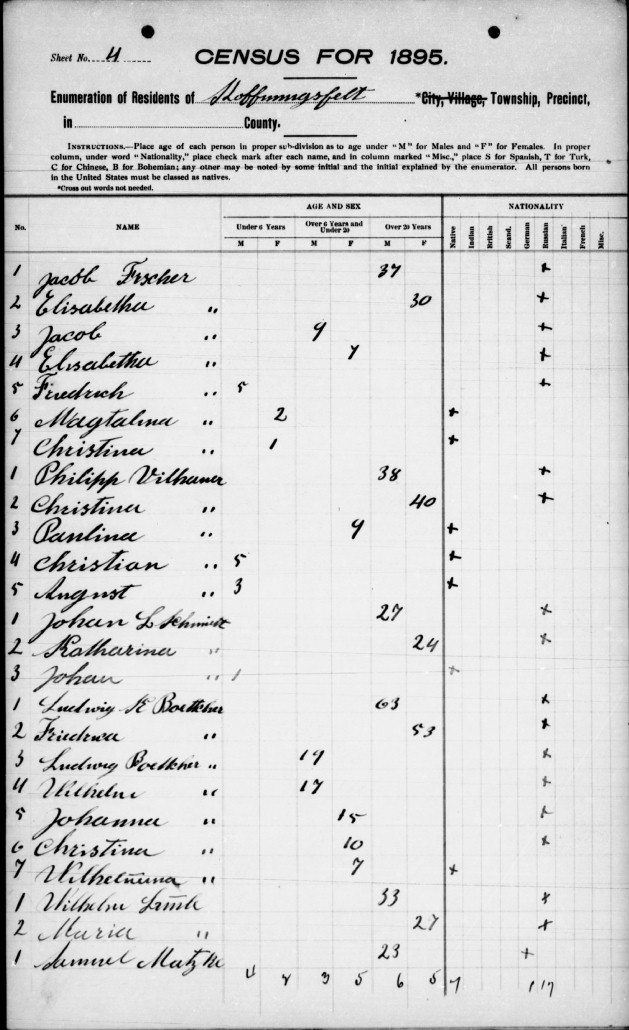 Sheet No. 4
CENSUS FOR 1895.
Enumeration of Residents of Hoffnungsfelt *City, Village, Township, Precinct,
in County.
INSTRUCTIONS.—Place age of each person in proper sub-division as to age under "M" for Males and "F" for Females. In proper
column, under word "Nationality," place check mark after each name, and in column marked "Misc.," place S for Spanish, T for Turk,
C for Chinese, B for Bohemian; any other may be noted by some initial and the initial explained by the enumerator. All persons born
in the United States must be classed as natives.
*Cross out words not needed.
AGE AND SEX NATIONALITY
No. NAME Under 6 Years Over 6 Years and Under 20 Over 20 Years Native Indian British Scand. German Russian Italian French Misc.
M F M F M F
1 Jacob Fischer 37 +
2 Elisabetha " 30 +
3 Jacob " 9 +
4 Elisabetha " 7 +
5 Friedrich " 5 +
6 Magtalina " 2 +
7 Christina " 1 +
1 Philipp 38 +
2 Christina " 40 +
3 Paulina " 9 +
4 Christian " 5 +
5 August " 3 +
1 Johan L Schmidt 27 +
2 Katharina " 24 +
3 Johan " 1 +
1 Ludwig K Boettcher 63 +
2 " 53 +
3 Ludwig Boettcher " 19 +
4 Wilhelm " 17 +
5 Johanna " 15 +
6 Christina " 10 +
7 Wilhelmina " 7 +
1 Wilhelm 33 +
2 Maria " 27 +
1 Samuel Matzke 23 +
4 3 5 6 5 7 1 17